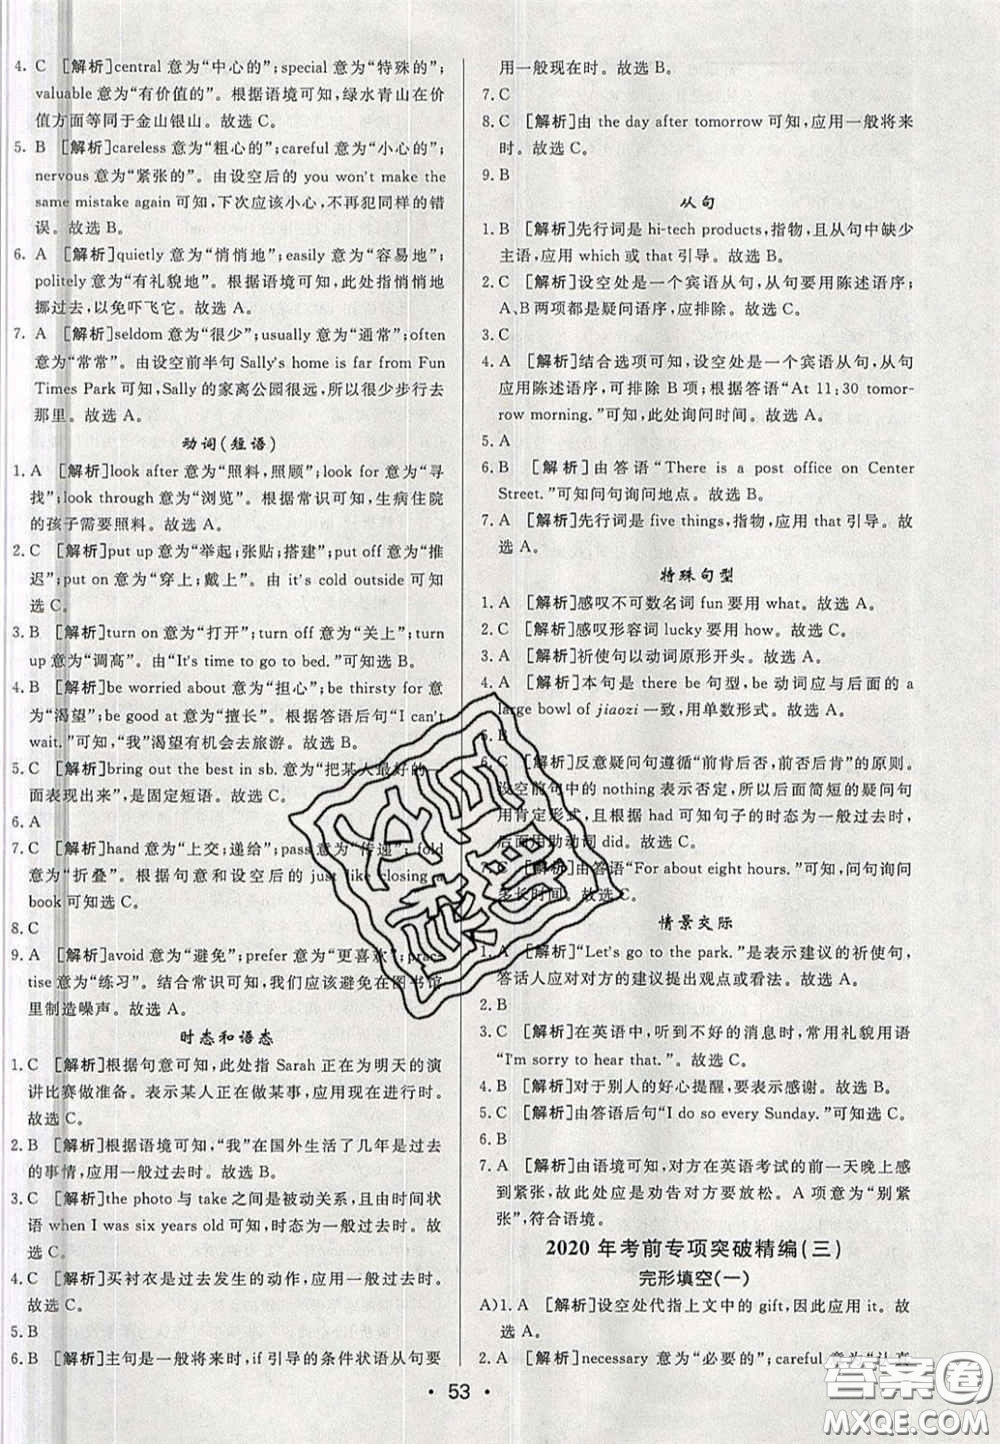 4. C [解析]central 意为“中心的”;special 意为“特殊的”;
valuable 意为“有价值的”。根据语境可知,绿水青山在价
值方面等同于金山银山。故选 C。
5. B [解析]careless 意为“粗心的”;careful 意为“小心的”;
nervous 意为“紧张的”。由设空后的 you won't make the
same mistake again 可知,下次应该小心,不再犯同样的错
误。故选 B。
6. A [解析]quietly 意为“悄悄地”;easily 意为“容易地”;
politely 意为“有礼貌地”。根据语境可知,此处指悄悄地
挪过去,以免吓飞它。故选 A。
7. A [解析]seldom 意为“很少”;usually 意为“通常”;often
意为“常常”。由设空前半句 Sally's home is far from Fun
Times Park 可知,Sally 的家离公园很远,所以很少步行去
那里。故选 A。
动词(短语)
1. A [解析]look after 意为“照料,照顾”;look for 意为“寻
找”;look through 意为“浏览”。根据常识可知,生病住院
的孩子需要照料。故选 A。
2. C [解析]put up 意为“举起;张贴;搭建”;put off 意为“推
迟”;put on 意为“穿上;戴上”。由 it's cold outside 可知
选 C。
3. B [解析]turn on 意为“打开”;turn off 意为“关上”;turn
up 意为“调高”。由“It's time to go to bed.”可知选 B。
4. B [解析]be worried about 意为“担心”;be thirsty for 意
为“渴望”;be good at 意为“擅长”。根据答语后句“I can't
wait.”可知,“我”渴望有机会去旅游。故选 B。
5. C [解析]bring out the best in sb. 意为“把某人最好的一
面表现出来”,是固定短语。故选 C。
6. A
7. C [解析]hand 意为“上交;递给”;pass 意为“传递”;fold
意为“折叠”。根据句意和设空后的 just like closing a
book 可知选 C。
8. C
9. A [解析]avoid 意为“避免”;prefer 意为“更喜欢”;prac-
tise 意为“练习”。结合常识可知,我们应该避免在图书馆
里制造噪声。故选 A。
时态和语态
1. C [解析]根据句意可知,此处指 Sarah 正在为明天的演
讲比赛做准备。表示某人正在做某事,应用现在进行时。
故选 C。
2. B [解析]根据语境可知,“我”在国外生活了几年是过去
的事情,应用一般过去时。故选 B。
3. C [解析]the photo 与 take 之间是被动关系,且由时间状
语 when I was six years old 可知,时态为一般过去时。故
选 C。
4. C [解析]买衬衣是过去发生的动作,应用一般过去时。
故选 C。
5. B
6. B [解析]主句是一般将来时,if 引导的条件状语从句要
用一般现在时。故选 B。
7. C
8. C [解析]由 the day after tomorrow 可知,应用一般将来
时。故选 C。
9. B
从句
1. B [解析]先行词是 hi-tech products,指物,且从句中缺少
主语,应用 which 或 that 引导。故选 B。
2. C [解析]设空处是一个宾语从句,从句要用陈述语序,
A、B 两项都是疑问语序,应排除。故选 C。
3. C
4. A [解析]结合选项可知,设空处是一个宾语从句,从句
应用陈述语序,可排除 B 项;根据答语“At 11:30 tomor-
row morning.”可知,此处询问时间。故选 A。
5. A
6. B [解析]由答语“There is a post office on Center
Street.”可知问句询问地点。故选 B。
7. A [解析]先行词是 five things,指物,应用 that 引导。故
选 A。
特殊句型
1. A [解析]感叹不可数名词 fun 要用 what。故选 A。
2. C [解析]感叹形容词 lucky 要用 how。故选 C。
3. A [解析]祈使句以动词原形开头。故选 A。
4. A [解析]本句是 there be 句型,be 动词应与后面的 a
large bowl of jiaozi 一致,用单数形式。故选 A。
5. B
6. C [解析]反意疑问句遵循“前肯后否,前否后肯”的原则。
设空前句中的 nothing 表示否定,所以后面简短的疑问句
用肯定形式;根据 had 可知句子的时态为一般过去时,
后面用助动词 did。故选 C。
7. C [解析]由答语“For about eight hours.”可知,问句询问
多长时间。故选 C。
情景交际
1. A [解析]“Let's go to the park.”是表示建议的祈使句,
答话人应对对方的建议提出观点或看法。故选 A。
2. B
3. C [解析]在英语中,听到不好的消息时,常用礼貌用语
“I'm sorry to hear that.”。故选 C。
4. B [解析]对于别人的好心提醒,要表示感谢。故选 B。
5. C [解析]由答语后句“I do so every Sunday.”可知选 C。
6. B
7. A [解析]由语境可知,对方在英语考试的前一天晚上感
到紧张,因此此处应是劝告对方要放松。A 项意为“别紧
张”,符合语境。
2020 年考前专项突破精编(三)
完形填空(一)
A)1. A [解析]设空处代指上文中的 gift,因此应用 it。故
选 A。
2. A [解析]necessary 意为“必要的”;careful 意为“认真
• 53 •
答案圈
MXQE.COM